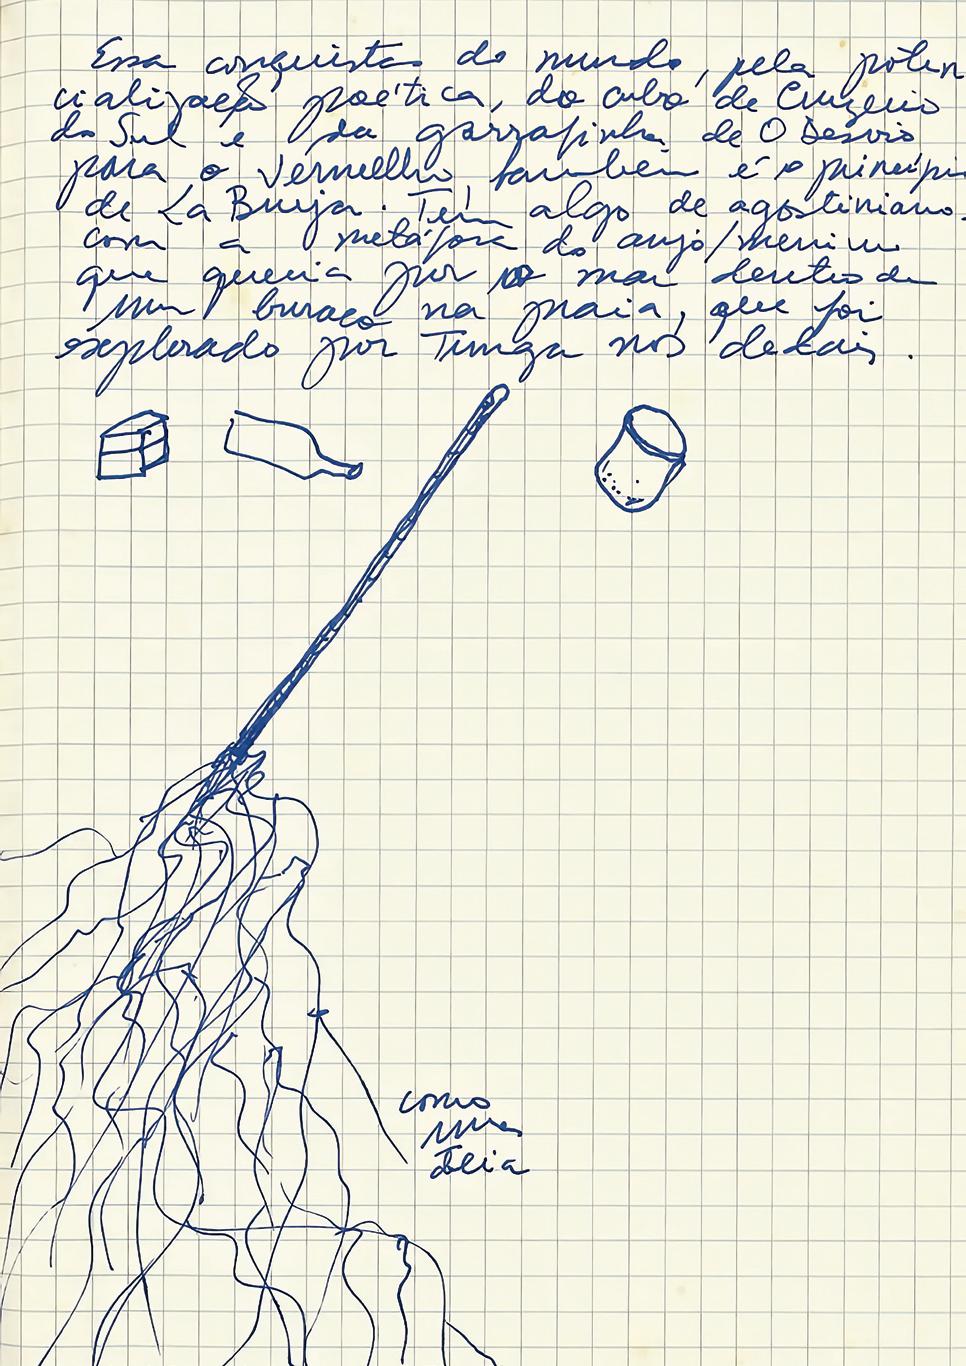 Essa conquista do mundo, pela poten
cialização poética, do cubo de Cruzeiro
do Sul e da garrafinha de O Desvio
para o Vermelho também é o princípi
de La Bruja. Tem algo de agostiniano.
com a metáfora do anjo/menino
que queria por o mar dentro de
um buraco na praia, que foi
explorado por Tunga nos
como
uma